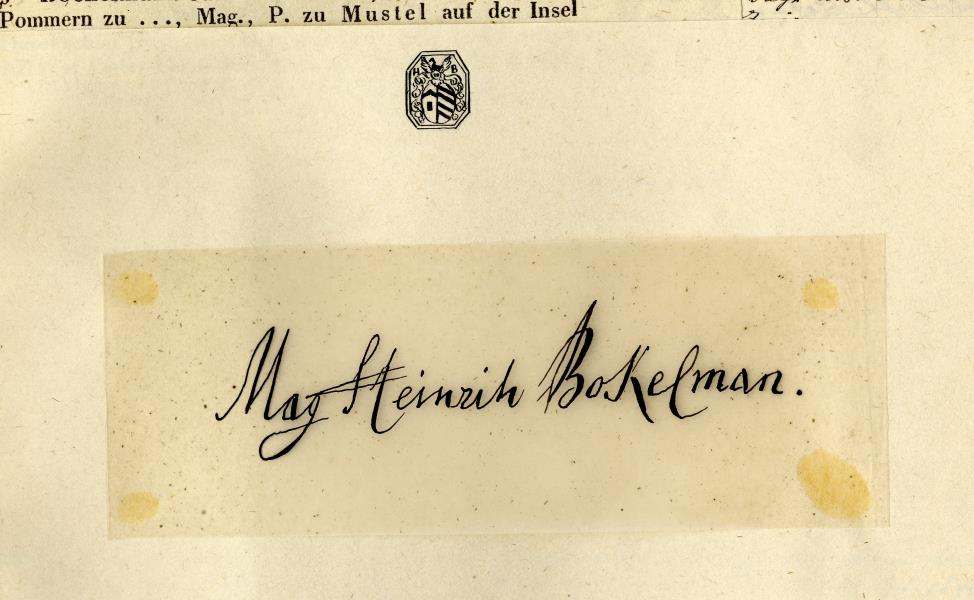 Pommern zu ..., Mag., P. zu Mustel auf der Insel
H B
Mag Heinrih Bokelman.